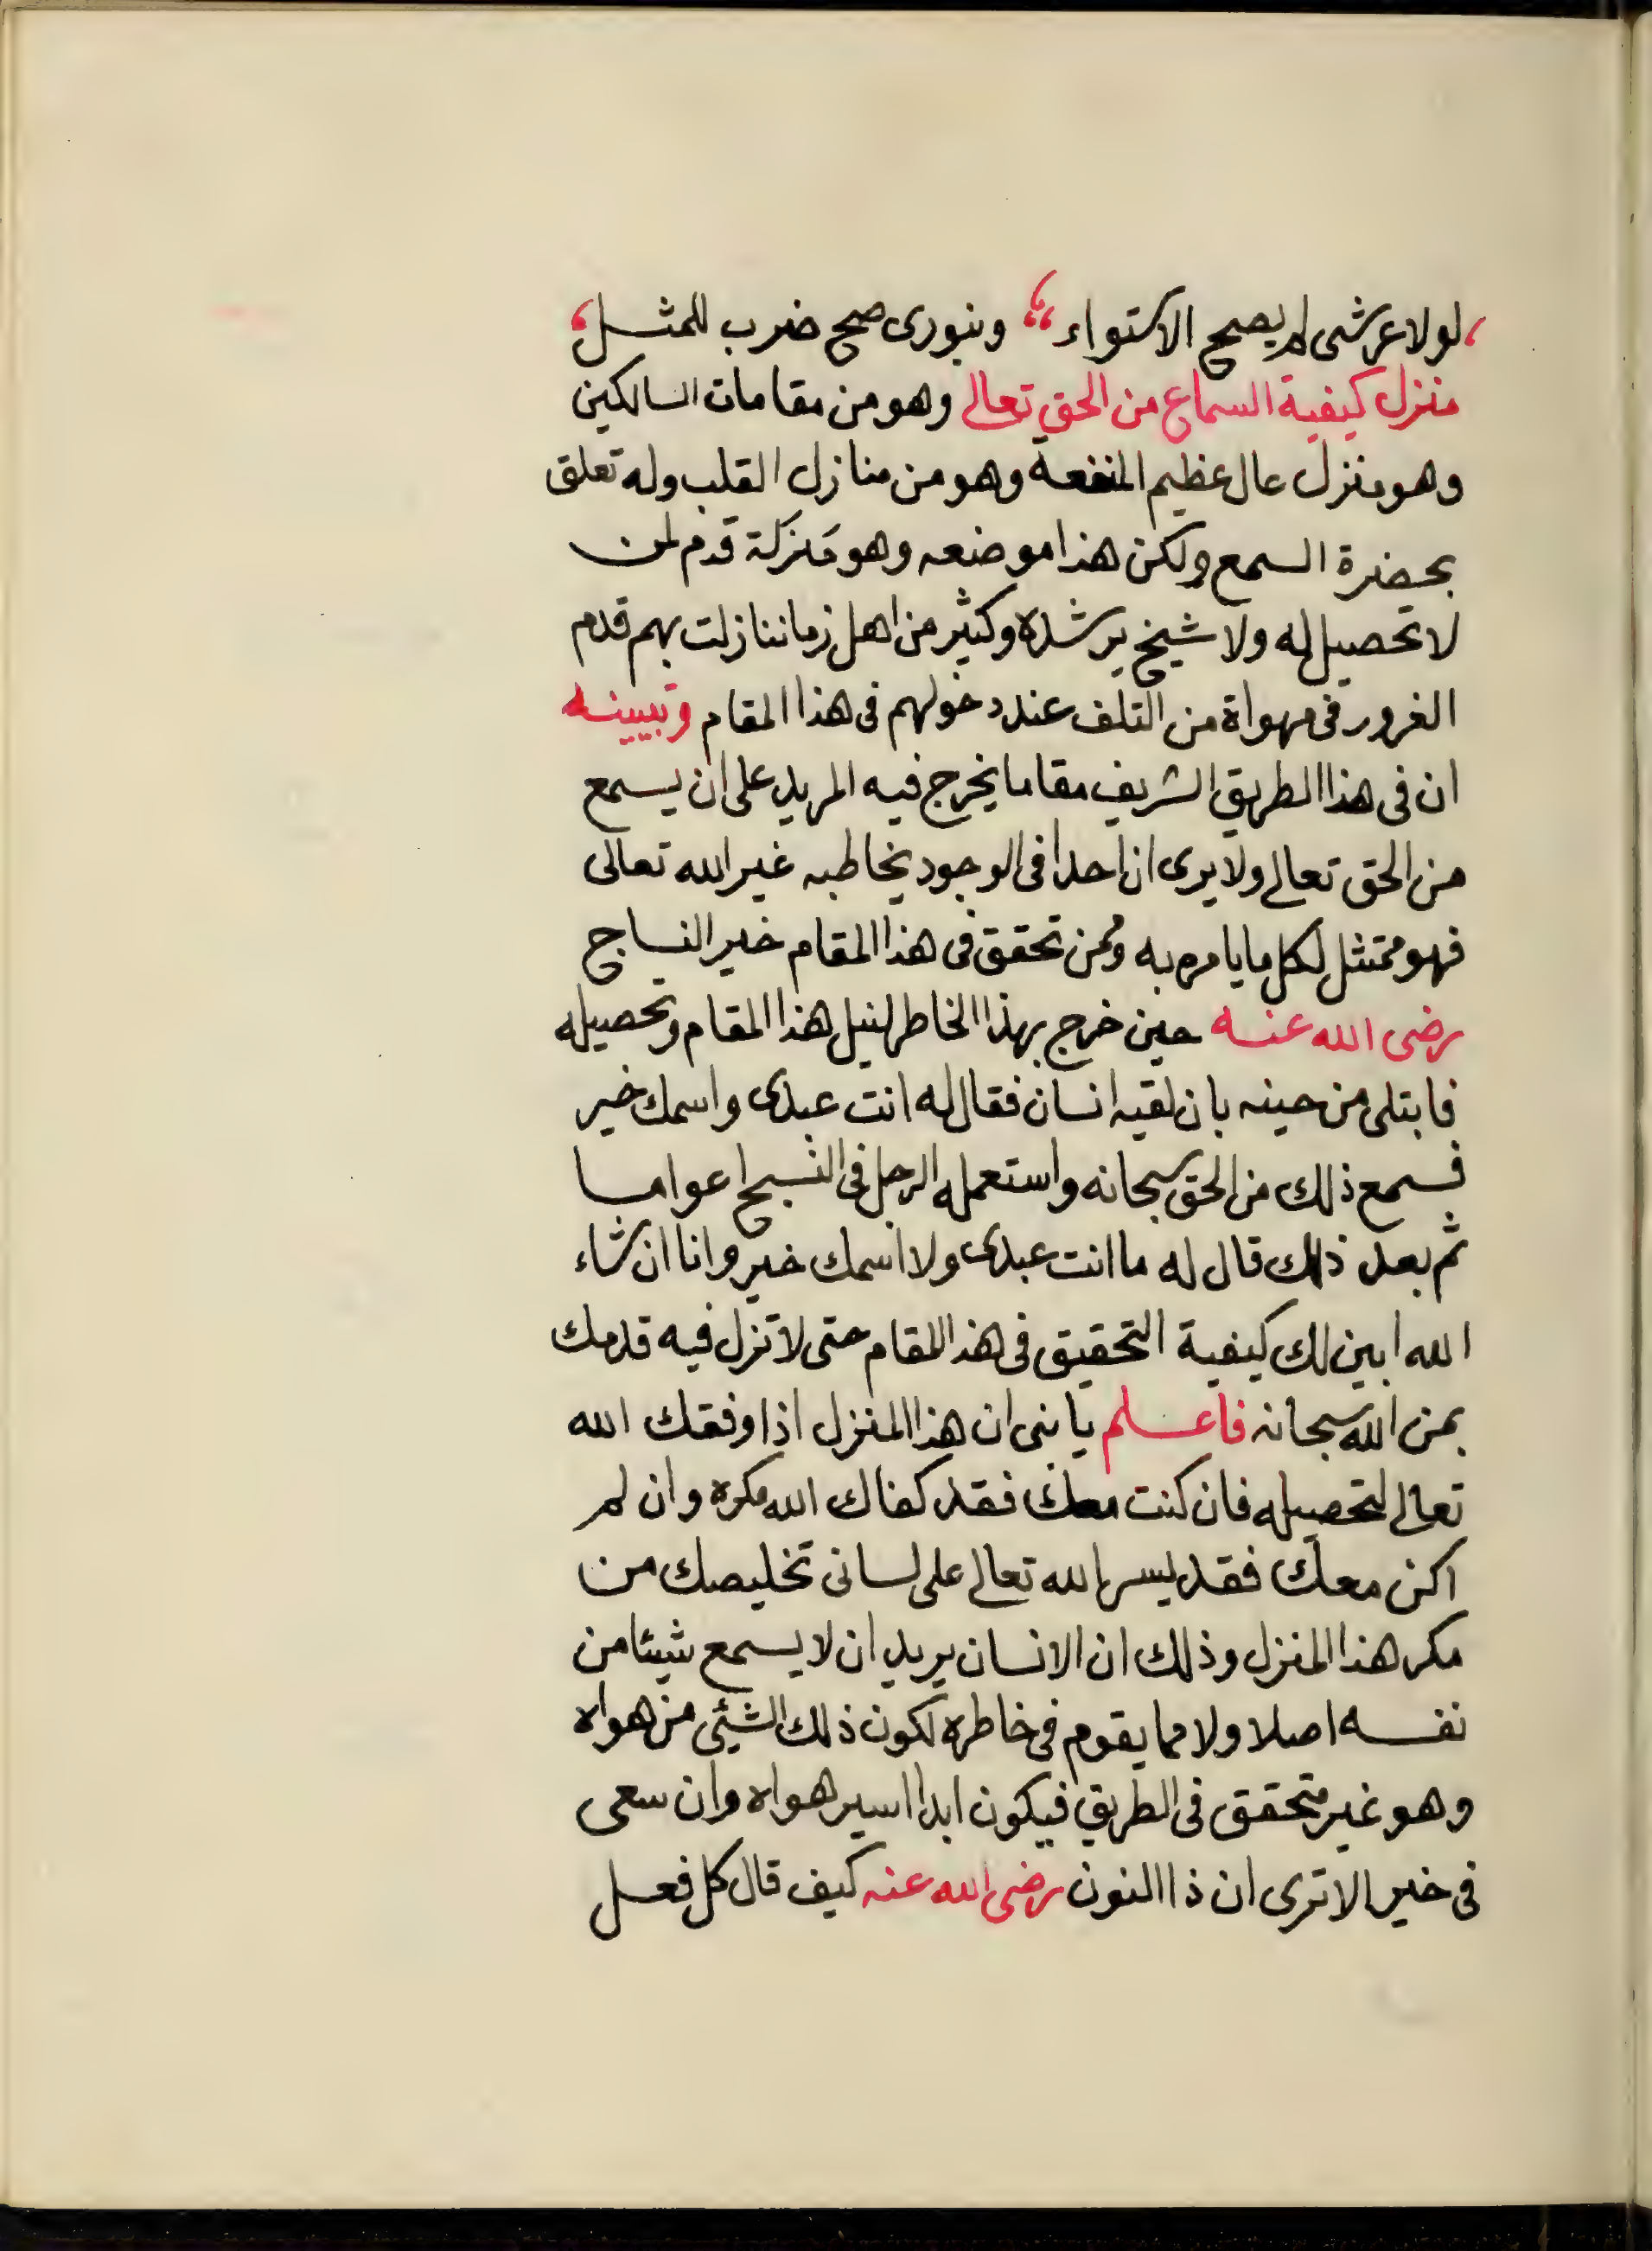 لولا عرشى لم يصح الاستواء وبنورى صح ضرب للمثل
منزل كيفية السماع من الحق تعالى وهو من مقامات السالكين
وهو منزل عال عظيم المنفعة وهو من منازل القلب وله تعلق
بحضرة السمع ولكن هذا موضعه وهو مَنزلة قدم لمن
لا تحصيل له ولا شيخ يرشده وكثير من اهل زماننا زلت بهم قدم
الغرور فى مهواة من التلف عند دخولهم فى هذا المقام وتبيينه
ان فى هذا الطريق الشريف مقاما يخرج فيه المريد على ان يسمع
من الحق تعالى ولا يرى ان احدا فى الوجود يخاطبه غير الله تعالى
فهو ممتثل لكل ما يامره به وممن تحقق فى هذا المقام خير النساج
رضى الله عنه حين خرج بهذا الخاطر لنيل هذا المقام وتحصيله
فابتلى من حينه بان لقيه انسان فقال له انت عبدى واسمك خير
فسمع ذلك من الحق سبحانه واستعمله الرجل فى النسج اعواما
ثم بعد ذلك قال له ما انت عبدى ولا اسمك خير وانا ان شاء
الله ابين لك كيفية التحقيق فى هذا المقام حتى لا تزل فيه قدمك
بمن الله سبحانه فاعلم يا بنى ان هذا المنزل اذا وفقك الله
تعالى لتحصيله فان كنت معك فقد كفاك الله مكره وان لم
اكن معك فقد يسر الله تعالى على لسانى تخليصك من
مكر هذا المنزل وذلك ان الانسان يريد ان لا يسمع شيئا من
نفسه اصلا ولا مما يقوم فى خاطره لكون ذلك الشئى من هواه
وهو غير متحقق فى الطريق فيكون ابدا اسير هواه وان سعى
فى خير الا ترى ان ذا النون رضى الله عنه كيف قال كل فعل